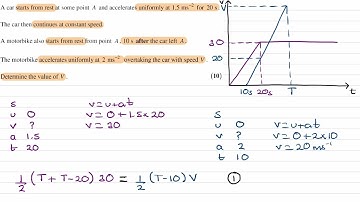 A car starts from rest at some point A and accelerates uniformly at 1.5 ms⁻² for 20 s.
The car then continues at constant speed.
A motorbike also starts from rest from point A, 10 s after the car left A.
The motorbike accelerates uniformly at 2 ms⁻² overtaking the car with speed V
Determine the value of V.
(10)
V
30
20
10s 20s T t
s
u 0
v ?
a 1.5
t 20
v = u + at
v = 0 + 1.5 × 20
v = 30
s
u 0
v ?
a 2
t 10
v = u + at
v = 0 + 2 × 10
v = 20 ms⁻¹
1/2 (T + T - 20) 30 = 1/2 (T - 10) V ①